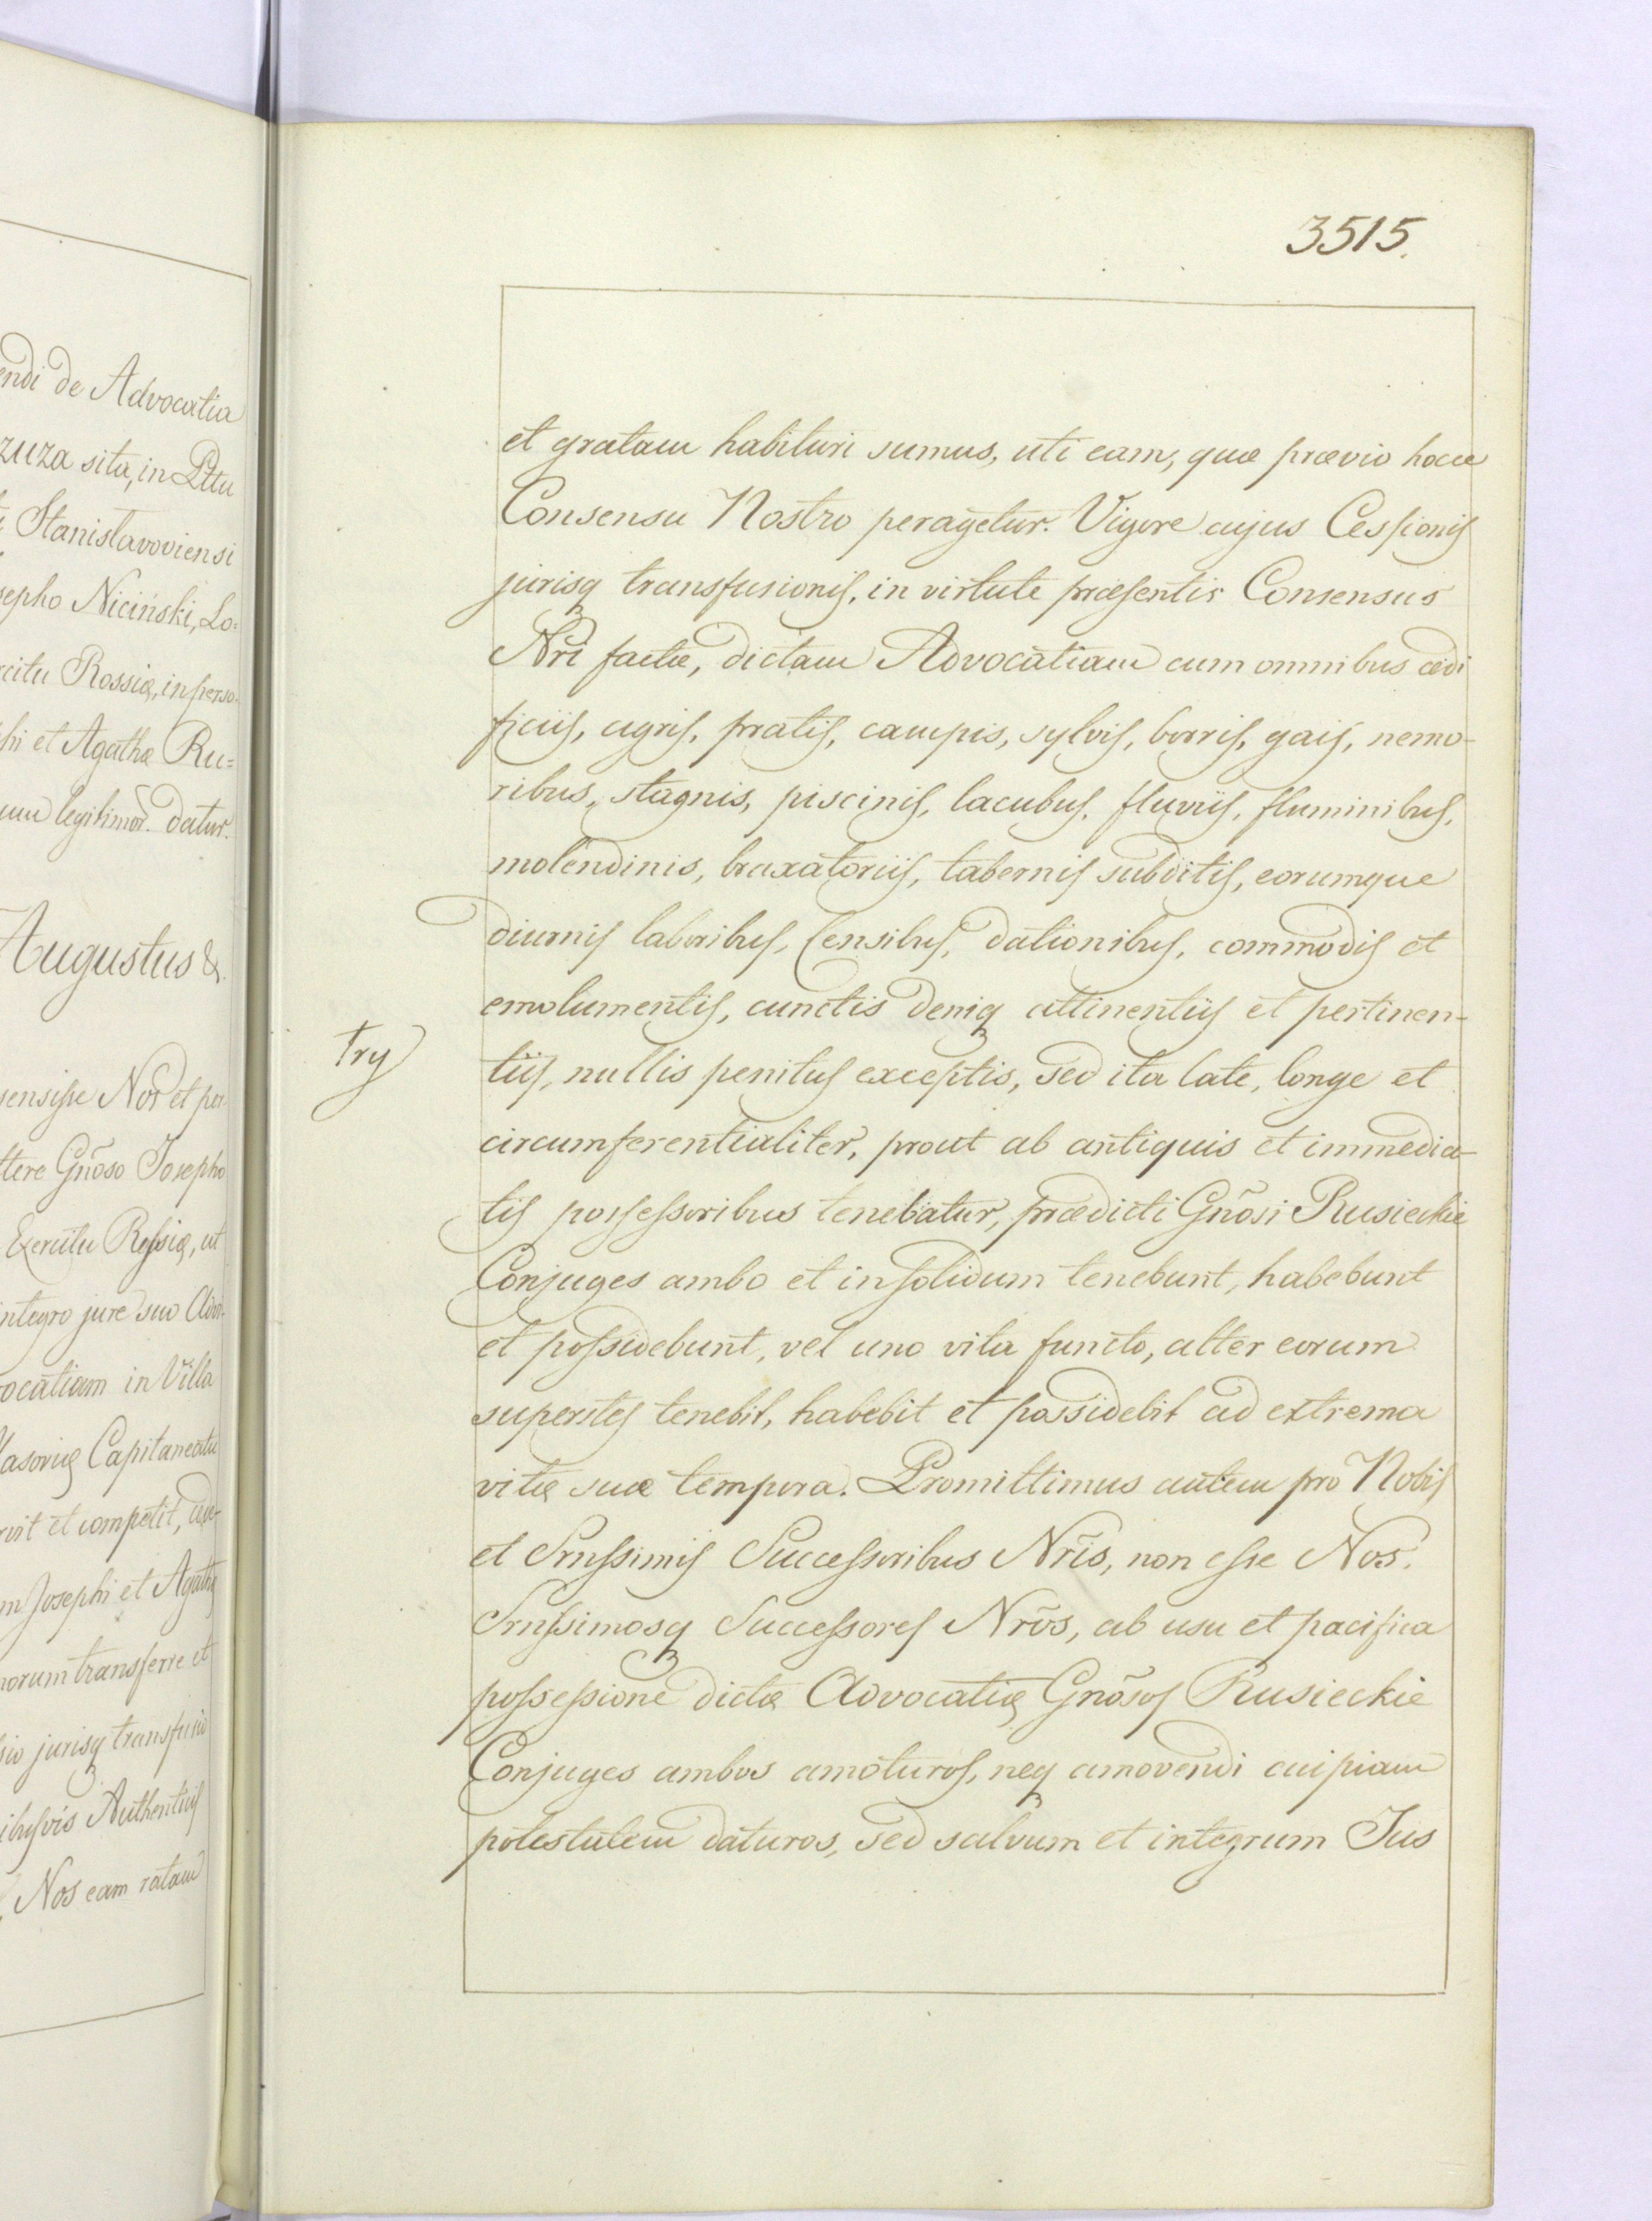 endi de Advocatia
zuza sita, in Pttu
Stanislavoviensi
sepho Niciński, Lo=
rcitu Rossiæ, in perso-
hi et Agathæ Ru=
um legitimor. datur.
Augustus &.
sensisse Nos et per-
ttere Gñoso Josepho
Exercitu Rossiæ, ut
integro jure suo Advo-
ocatiam in Villa
asoviæ Capitaneatu
vit et competit, ad
m Josephi et Agathæ
norum transferre et
sio jurisq transfusio
ibusvis Authenticis
Nos eam ratam
3515.
et gratam habituri sumus, uti eam, quæ prævio hocce
Consensu Nostro peragetur. Vigore cujus Cessionis
jurisq transfusionis, in virtute præsentis Consensus
Nri factæ, dictam Advocatiam cum omnibus ædi
ficiis, agris, pratis, campis, sylvis, borris, gais, nemo-
ribus, stagnis, piscinis, lacubus, fluviis, fluminibus,
molendinis, braxatoriis, tabernis subditis, eorumque
diurnis laboribus, Censibus, dationibus, commodis et
emolumentis, cunctis deniq attinentiis et pertinen-
try
tiis, nullis penitus exceptis, sed ita late, longe et
circumferentialiter, prout ab antiquis et immedia-
tis possessoribus tenebatur, prædicti Gñosi Rusieckie
Conjuges ambo et in solidum tenebunt, habebunt
et possidebunt, vel uno vita functo, alter eorum
superstes tenebit, habebit et possidebit ad extrema
vitæ suæ tempora. Promittimus autem pro Nobis
et Srnssimis Successoribus Nris, non esse Nos.
Srnssimosq Successores Nrõs, ab usu et pacifica
possessione dictæ Advocatiæ Gnõsos Rusieckie
Conjuges ambos amoturos, neq amovendi cuipiam
potestatem daturos, sed salvum et integrum Jus